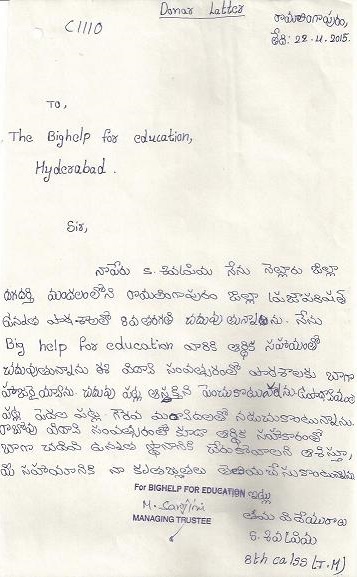 Donar Latter
C1110
రామలింగాపురం,
తేది: 22.4.2015.
To,
The Bighelp for education,
Hyderabad.
Sir,
నాపేరు S. శివప్రియ నేను నెల్లూరు జిల్లా
దగదర్తి మండలంలోని రామలింగాపురం జిల్లా ప్రజాపరిషత్
ఉన్నత పాఠశాలలో 8వ తరగతి చదువుతున్నాను. నేను
Big help for education వారికి ఆర్థిక సహాయంతో
చదువుతున్నాను ఈ విద్యా సంవత్సరంలో పాఠశాలకు బాగా
హాజరైయ్యాను. చదువు పట్ల ఆసక్తిని పెంచుకొటున్నాను ఉపాధ్యాయుల
పట్ల పెద్దల పట్ల గౌరవ మర్యాదలతో నడుచుకొంటున్నాను.
రాబోవు విద్యా సంవత్సరంలో కూడా ఆర్థిక సహకారంతో
బాగా చదివి ఉన్నత స్థానానికి చేరుకోవాలని ఆశిస్తూ,
మీ సహాయానికి నా కృతజ్ఞతలు తెలియచేసుకొంటున్నాను
For BIGHELP FOR EDUCATION ఇట్లు
M. Sarojini
MANAGING TRUSTEE
తమ విదేయురాలు
S. శివప్రియ
8th calss (T.M)